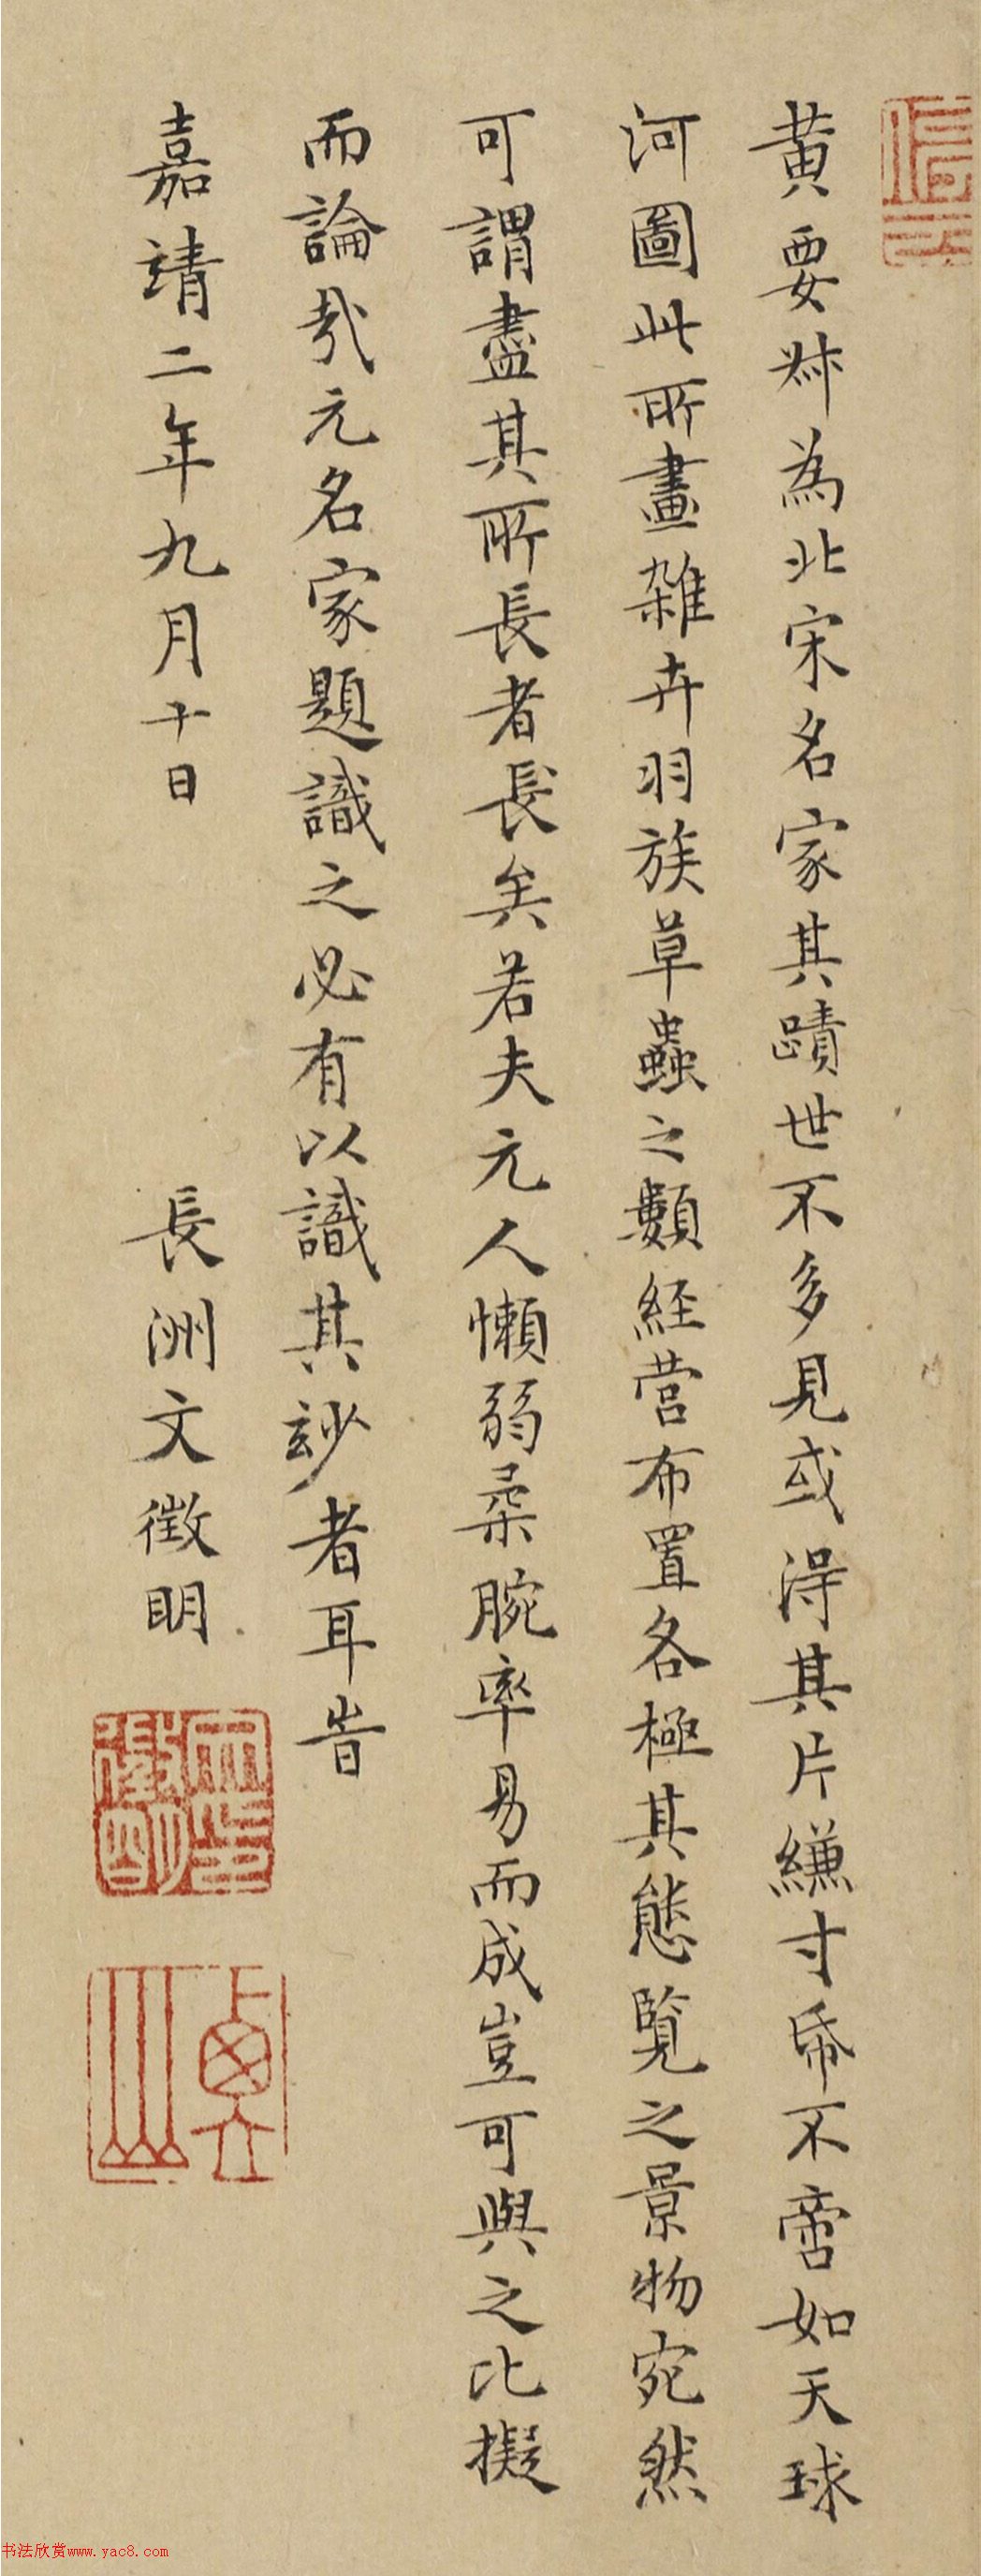 黄要叔為北宋名家其蹟世不多見或得其片縑寸帋不啻如天球
河圖此所畫雜卉羽族草蟲之類経营布置各極其態覧之景物宛然
可謂盡其所長者長矣若夫元人懶弱柔腕率易而成豈可與之比擬
而論哉元名家題識之必有以識其玅者耳旹
嘉靖二年九月十日
長洲文徵明
书法欣赏www.yac8.com